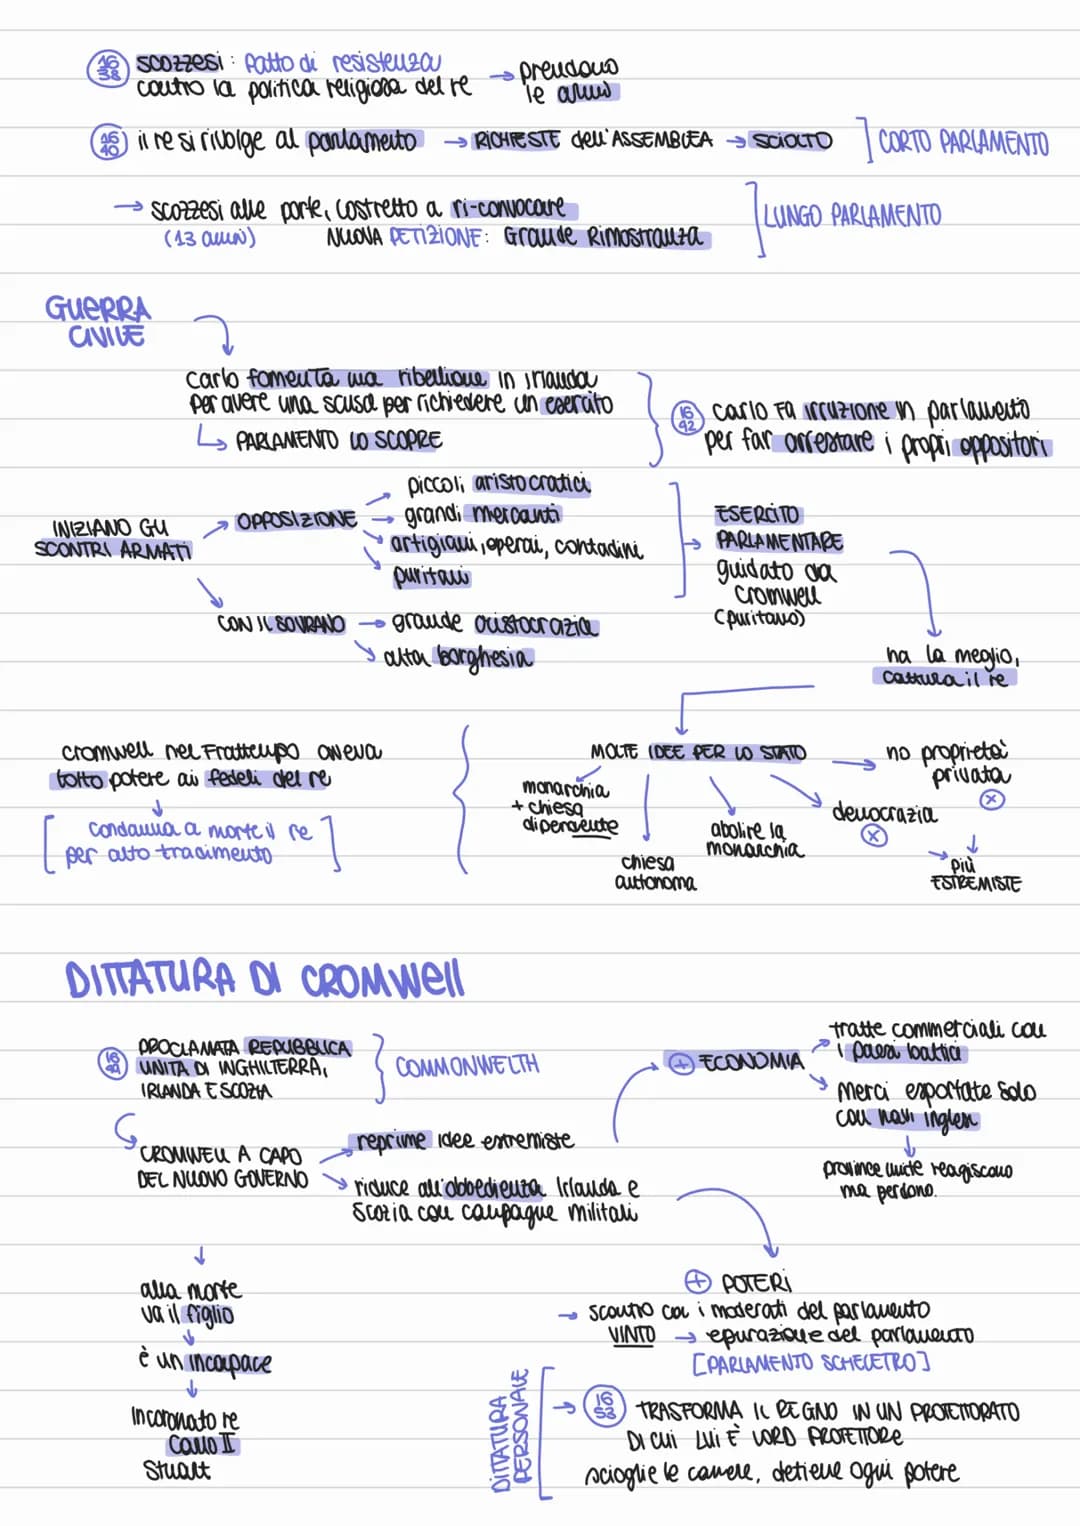 1638 scozzesi: patto di resistenza
contro la politica religiosa del re → prendono
le armi
1640 il re si rivolge al parlamento → RICHIESTE dell'ASSEMBLEA → SCIOLTO ] CORTO PARLAMENTO
→ scozzesi alle porte, costretto a ri-convocare
(13 anni) NUOVA PETIZIONE: Grande Rimostranza
LUNGO PARLAMENTO
GUERRA
CIVILE
Carlo fomenta una ribellione in irlanda
per avere una scusa per richiedere un esercito
↳ PARLAMENTO LO SCOPRE
1642 carlo fa irruzione in parlamento
per far arrestare i propri oppositori
INIZIANO GLI
SCONTRI ARMATI
OPPOSIZIONE
piccoli aristocratici
grandi mercanti
artigiani, operai, contadini
puritani
CON IL SOVRANO → grande aristocrazia
alta borghesia
ESERCITO
PARLAMENTARE
guidato da
Cromwell
(puritano)
ha la meglio,
cattura il re
cromwell nel frattempo aveva
tolto potere ai fedeli del re
[ condanna a morte il re ]
per alto tradimento
MOLTE IDEE PER LO STATO
monarchia
+ chiesa
dipendente
chiesa
autonoma
abolire la
monarchia
democrazia
no proprietà
privata
più
ESTREMISTE
DITTATURA DI CROMWell
1649 PROCLAMATA REPUBBLICA
UNITA DI INGHILTERRA,
IRLANDA E SCOZIA
COMMONWELTH
CROMWELL A CAPO
DEL NUOVO GOVERNO
reprime idee estremiste
riduce all'obbedienza Irlanda e
Scozia con campagne militari
+ ECONOMIA
tratte commerciali con
i paesi baltici
Merci esportate solo
con navi inglesi
province unite reagiscono
ma perdono.
alla morte
va il figlio
è un incapace
Incoronato re
Carlo II
Stuart
+ POTERI
→ scontro con i moderati del parlamento
VINTO → epurazione del parlamento
[PARLAMENTO SCHELETRO]
DITTATURA
PERSONALE
→ 1653 TRASFORMA IL REGNO IN UN PROTETTORATO
DI CUI LUI È LORD PROTETTORE
scioglie le camere, detiene ogni potere